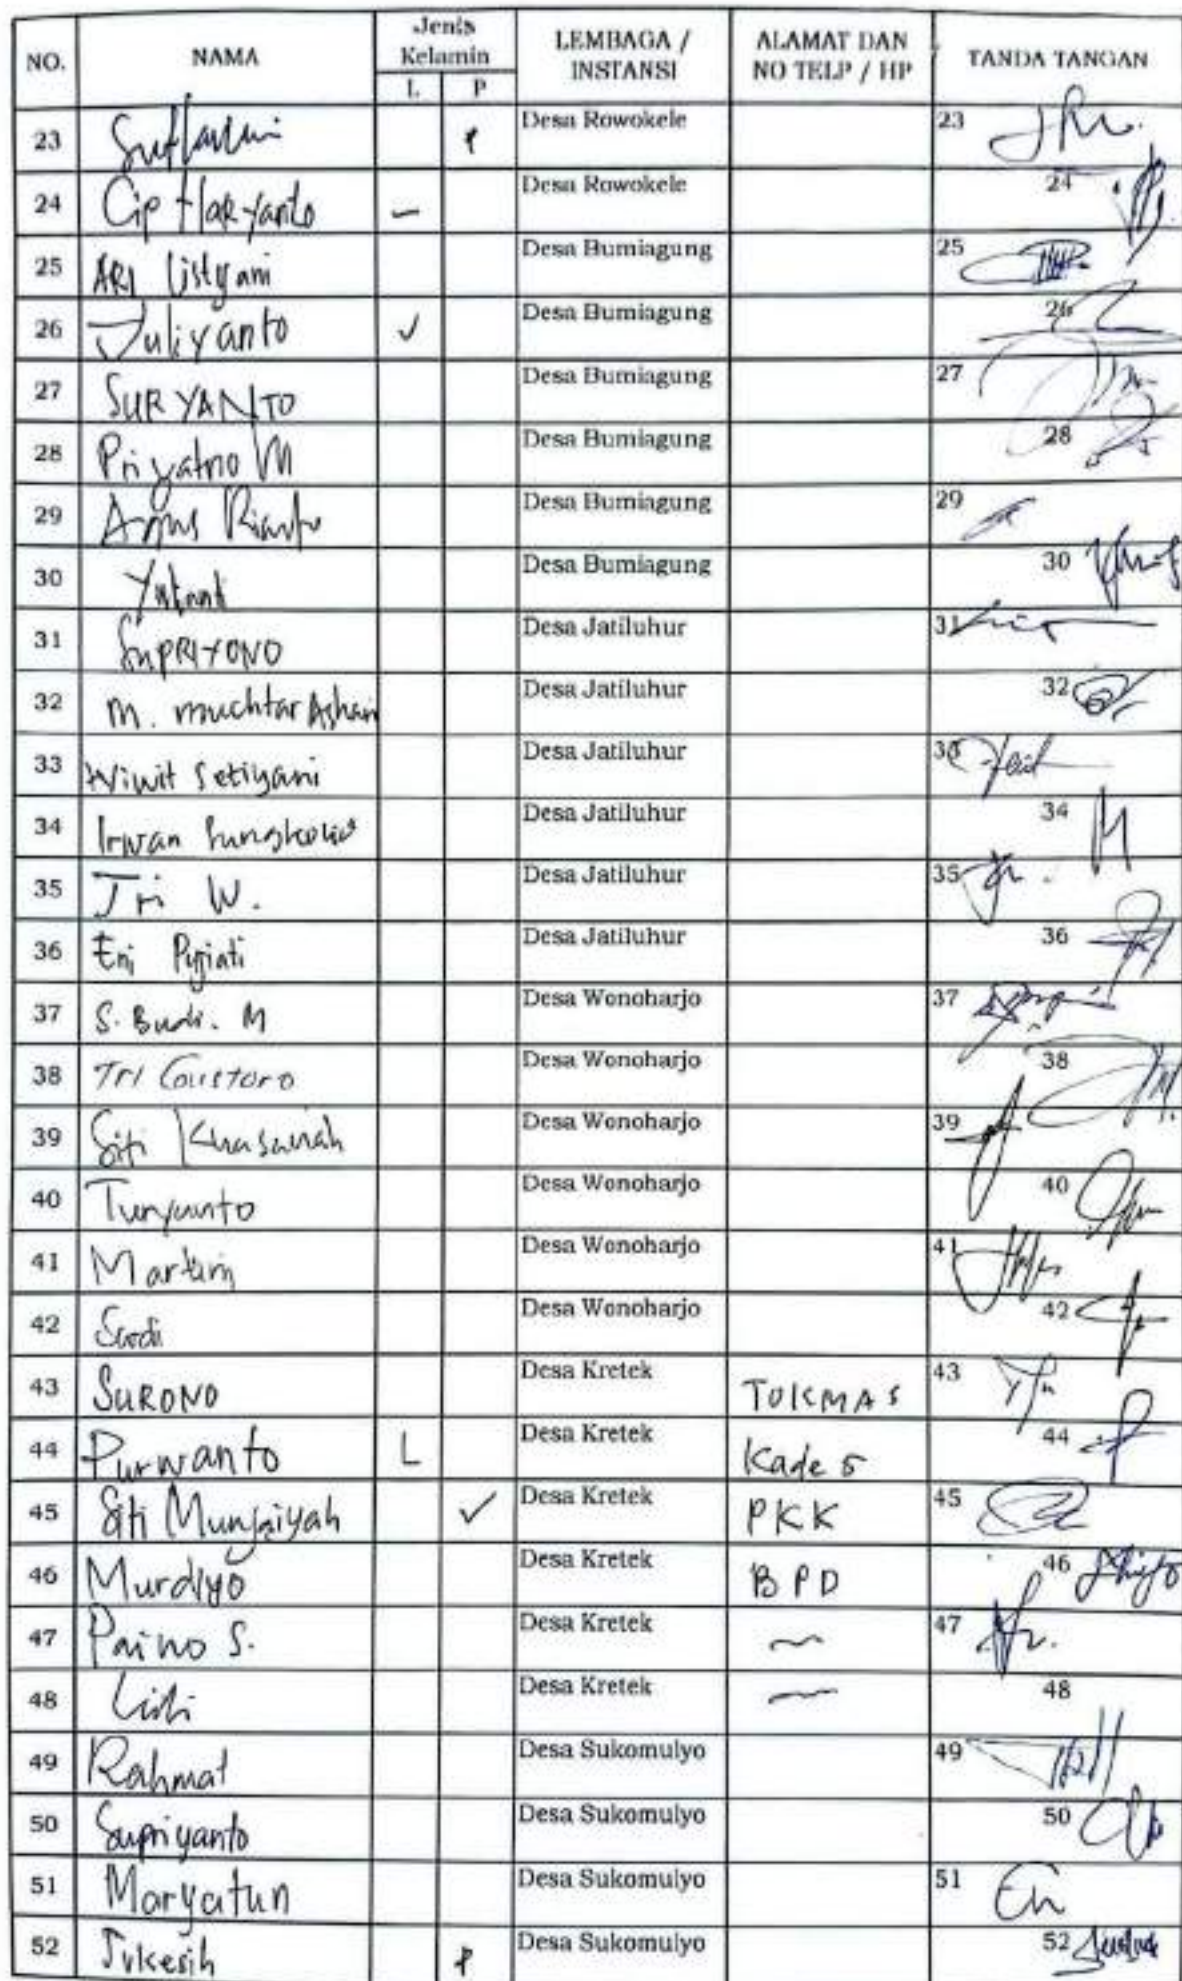 NO. NAMA Jenis Kelamin LEMBAGA / INSTANSI ALAMAT DAN NO TELP / HP TANDA TANGAN
L P
23 P Desa Rowokele 23
24 Cip Haryanto Desa Rowokele 24
25 ARI Listyani Desa Bumiagung 25
26 Juliyanto ✓ Desa Bumiagung 26
27 SURYANTO Desa Bumiagung 27
28 Priyatno M Desa Bumiagung 28
29 Agus Rianto Desa Bumiagung 29
30 Desa Bumiagung 30
31 SUPRIYONO Desa Jatiluhur 31
32 M. muchtar Ashari Desa Jatiluhur 32
33 Wiwit Setiyani Desa Jatiluhur 33
34 Irwan Desa Jatiluhur 34
35 Tri W. Desa Jatiluhur 35
36 Eni Pujiati Desa Jatiluhur 36
37 S. Budi. M Desa Wonoharjo 37
38 Tri Desa Wonoharjo 38
39 Siti Khasanah Desa Wonoharjo 39
40 Turyanto Desa Wonoharjo 40
41 Martini Desa Wonoharjo 41
42 Desa Wonoharjo 42
43 SURONO Desa Kretek TOKMAS 43
44 Purwanto L Desa Kretek Kades 44
45 Siti ✓ Desa Kretek PKK 45
46 Murdiyo Desa Kretek BPD 46
47 Paino S. Desa Kretek 47
48 Desa Kretek 48
49 Rahmat Desa Sukomulyo 49
50 Supriyanto Desa Sukomulyo 50
51 Maryatun Desa Sukomulyo 51
52 Sukesih P Desa Sukomulyo 52